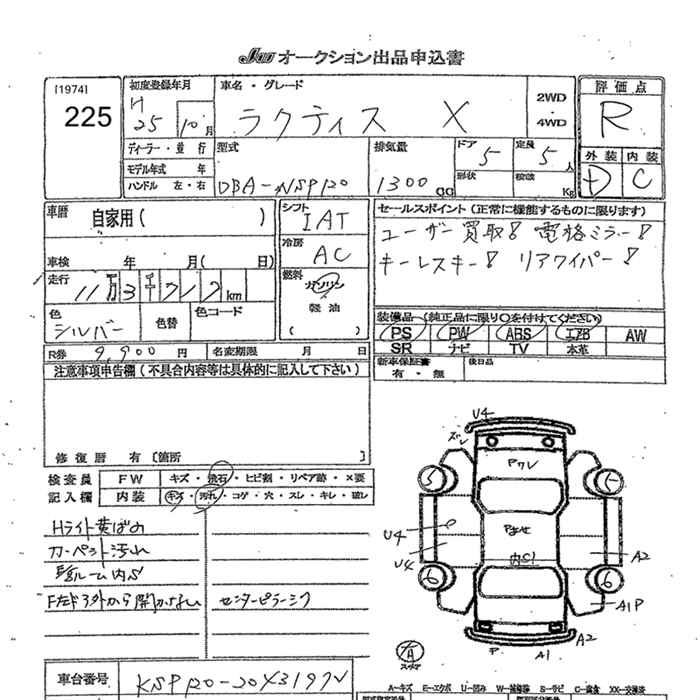 JU オークション出品申込書
[1974]
225
初度登録年月
H 25 10 月
車名・グレード
ラクティス X
2WD
・
4WD
評価点
R
ディーラー・並行
モデル年式 年
ハンドル 左・右
型式
DBA-NSP120
排気量
1300 cc
ドア 5
形状
定員 5 人
積載 Kg
外装 内装
D C
車歴
自家用( )
シフト
IAT
セールスポイント(正常に機能するものに限ります)
ユーザー買取! 電格ミラー!
キーレスキー! リアワイパー!
冷房
AC
車検 年 月( 日)
走行
11万3千717km
燃料
ガソリン
軽油
( )
色
シルバー
色替
色コード
装備品(純正品に限り〇を付けてください)
PS PW ABS エアB AW
SR ナビ TV 本革
R券 9,900 円
名変期限 月 日
新車保証書
有・無
後日品
注意事項申告欄(不具合内容等は具体的に記入して下さい)
修復歴 有〔箇所 〕
検査員 FW キズ・飛石・ヒビ割・リペア跡・×要
記入欄 内装 キズ・汚れ・コゲ・穴・スレ・キレ・破レ
Hライト黄ばみ
カーペット汚れ
F左ドア外から開かない センターピラーミク
U4
ズレ
Pワレ
5
U4
U4
6
6
A2
A1P
P
A1
A2
A
スペア
車台番号
A=キズ E=エクボ U=凹み W=補修跡 S=サビ C=腐食 XX=交換済